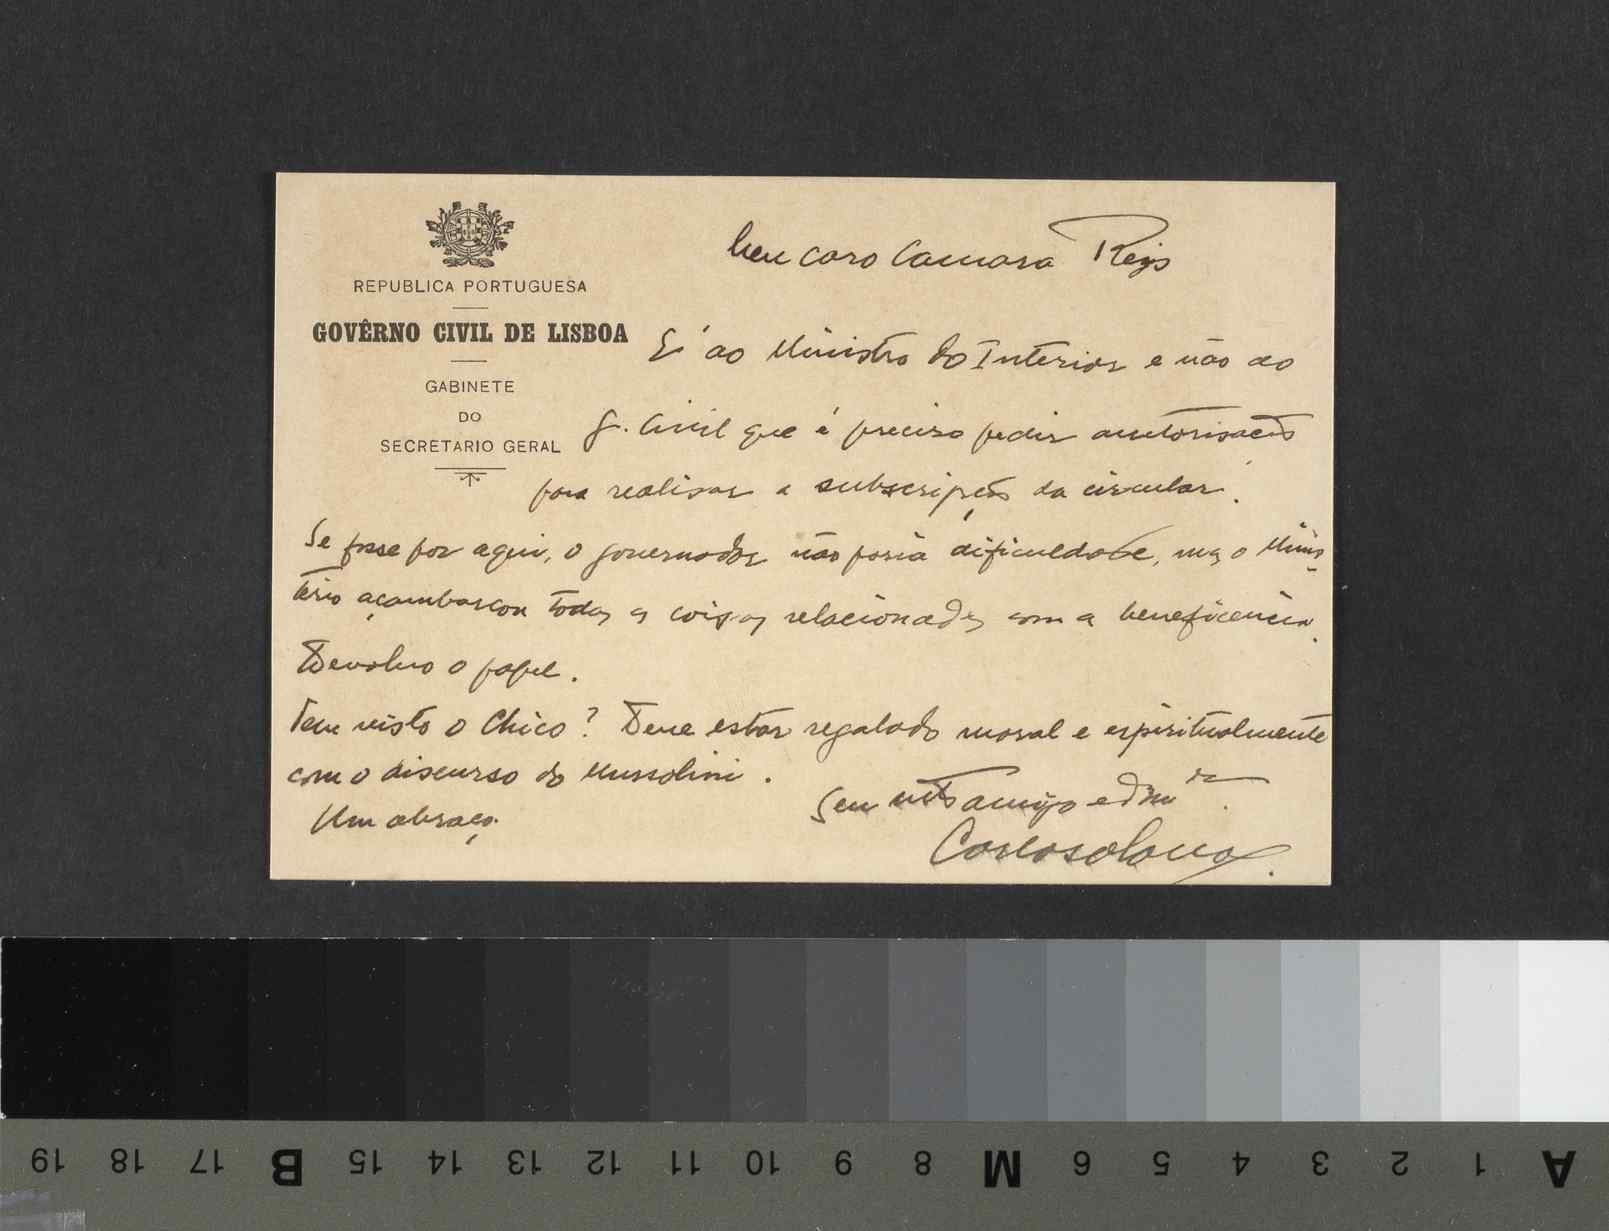 REPUBLICA PORTUGUESA
GOVÊRNO CIVIL DE LISBOA
GABINETE
DO
SECRETARIO GERAL
Meu caro Camara Reys
É ao Ministro do Interior e não ao
G. Civil que é preciso pedir autorisação
para realisar a subscripção da circular.
Se fosse por aqui, o governador não poria dificuldade, mas o Minis-
tério açambarcou todas as coisas relacionadas com a beneficencia.
Devolvo o papel.
Tem visto o Chico? Deve estar regalado moral e espiritualmente
com o discurso do Mussolini.
Um abraço.
Seu mto amigo e Dmor.
19 18 17 B 15 14 13 12 11 10 9 8 M 6 5 4 3 2 1 A